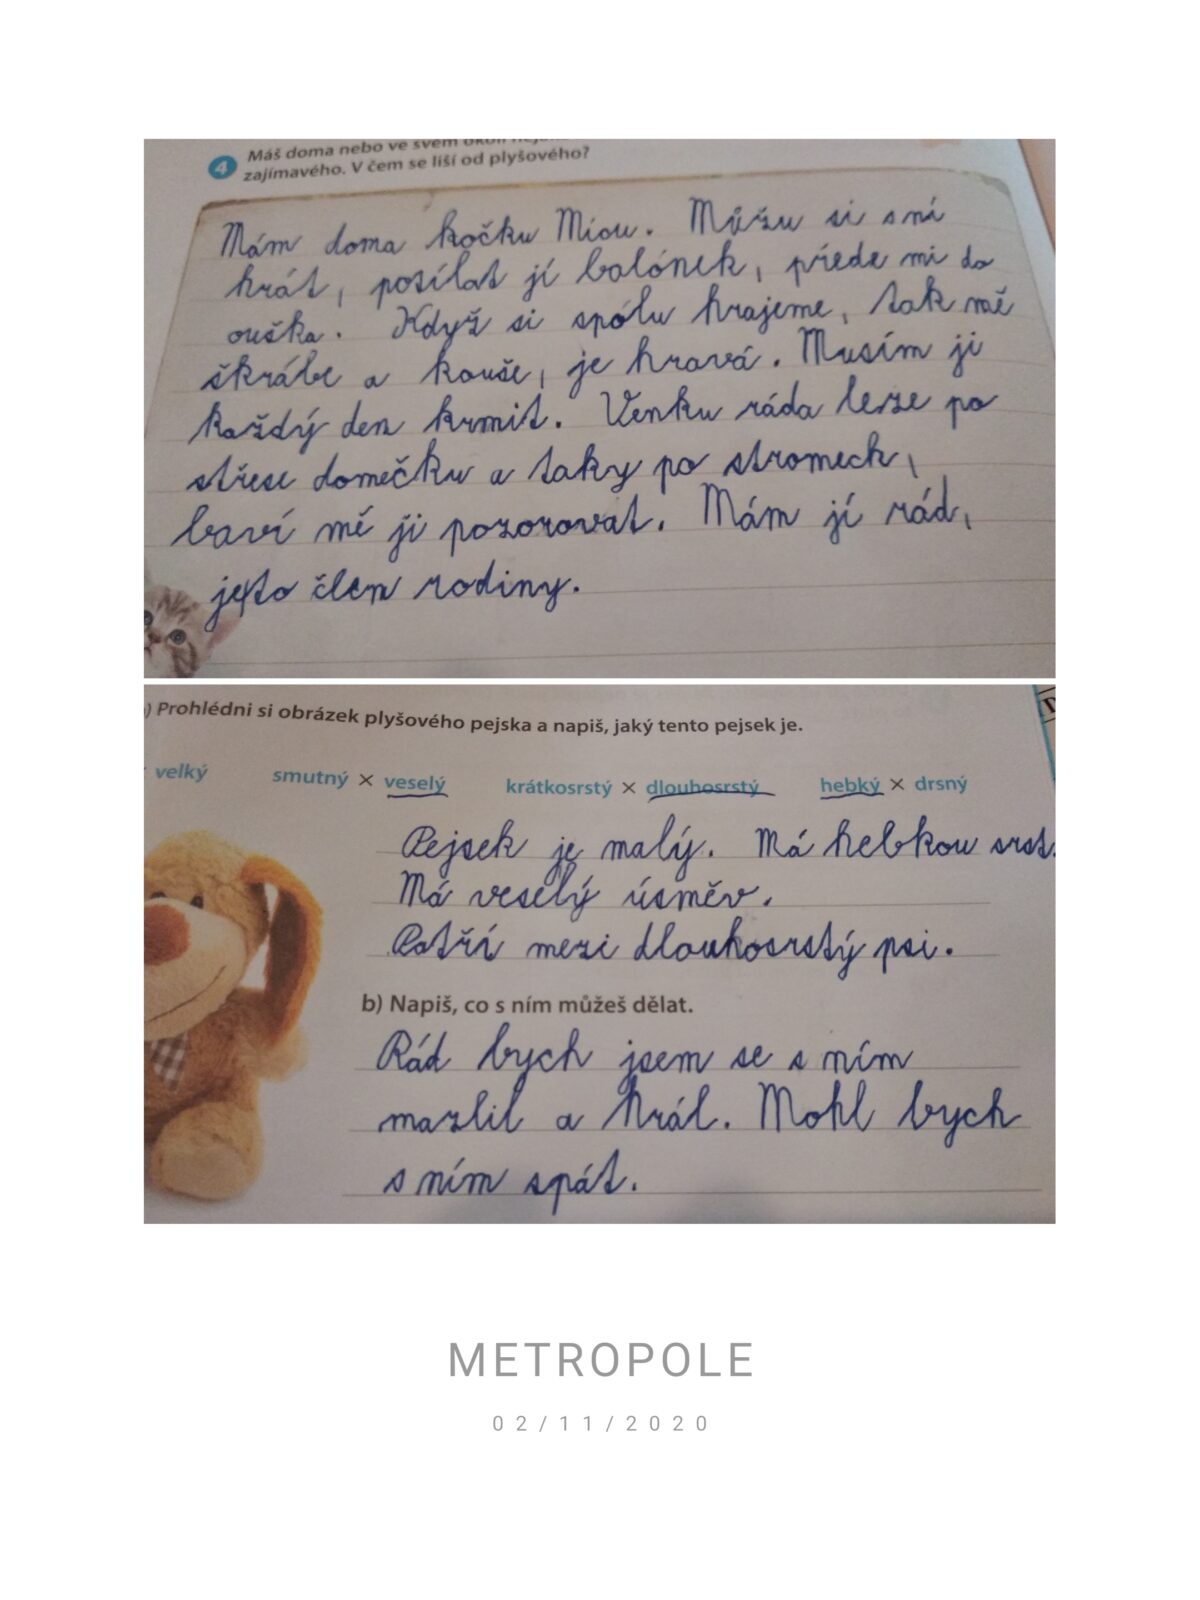 4 Máš doma nebo ve svém okolí
zajímavého. V čem se liší od plyšového?
Mám doma kočku Miou. Můžu si s ní
hrát, posílat jí balónek, přede mi do
ouška. Když si spólu hrajeme, tak mě
škrábe a kouše, je hravá. Musím ji
každý den krmit. Venku ráda leze po
střese domečku a taky po stromech,
baví mě ji pozorovat. Mám jí rád,
je to člen rodiny.
) Prohlédni si obrázek plyšového pejska a napiš, jaký tento pejsek je.
velký smutný × veselý krátkosrstý × dlouhosrstý hebký × drsný
Pejsek je malý. Má hebkou srst.
Má veselý úsměv.
Patří mezi dlouhosrstý psi.
b) Napiš, co s ním můžeš dělat.
Rád bych jsem se s ním
mazlil a hrál. Mohl bych
s ním spát.
METROPOLE
02/11/2020